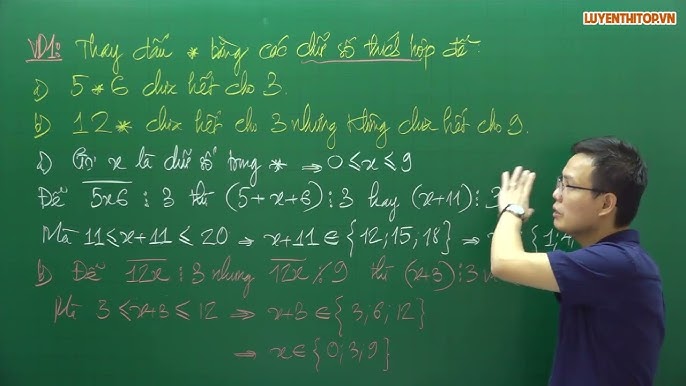 LUYENTHITOP.VN
VD1: Thay dấu * bằng các chữ số thích hợp để:
a) 5*6 chia hết cho 3.
b) 12* chia hết cho 3 nhưng không chia hết cho 9.
a) Gọi x là chữ số trong * ⇒ 0 ≤ x ≤ 9
Để 5x6 ⋮ 3 thì (5+x+6) ⋮ 3 hay (x+11) ⋮ 3
Mà 11 ≤ x+11 ≤ 20 ⇒ x+11 ∈ {12; 15; 18} ⇒ {1; 4
b) Để 12x ⋮ 3 nhưng 12x ⋮̸ 9 thì (x+3) ⋮ 3
Mà 3 ≤ x+3 ≤ 12 ⇒ x+3 ∈ {3; 6; 12}
⇒ x ∈ {0; 3; 9}